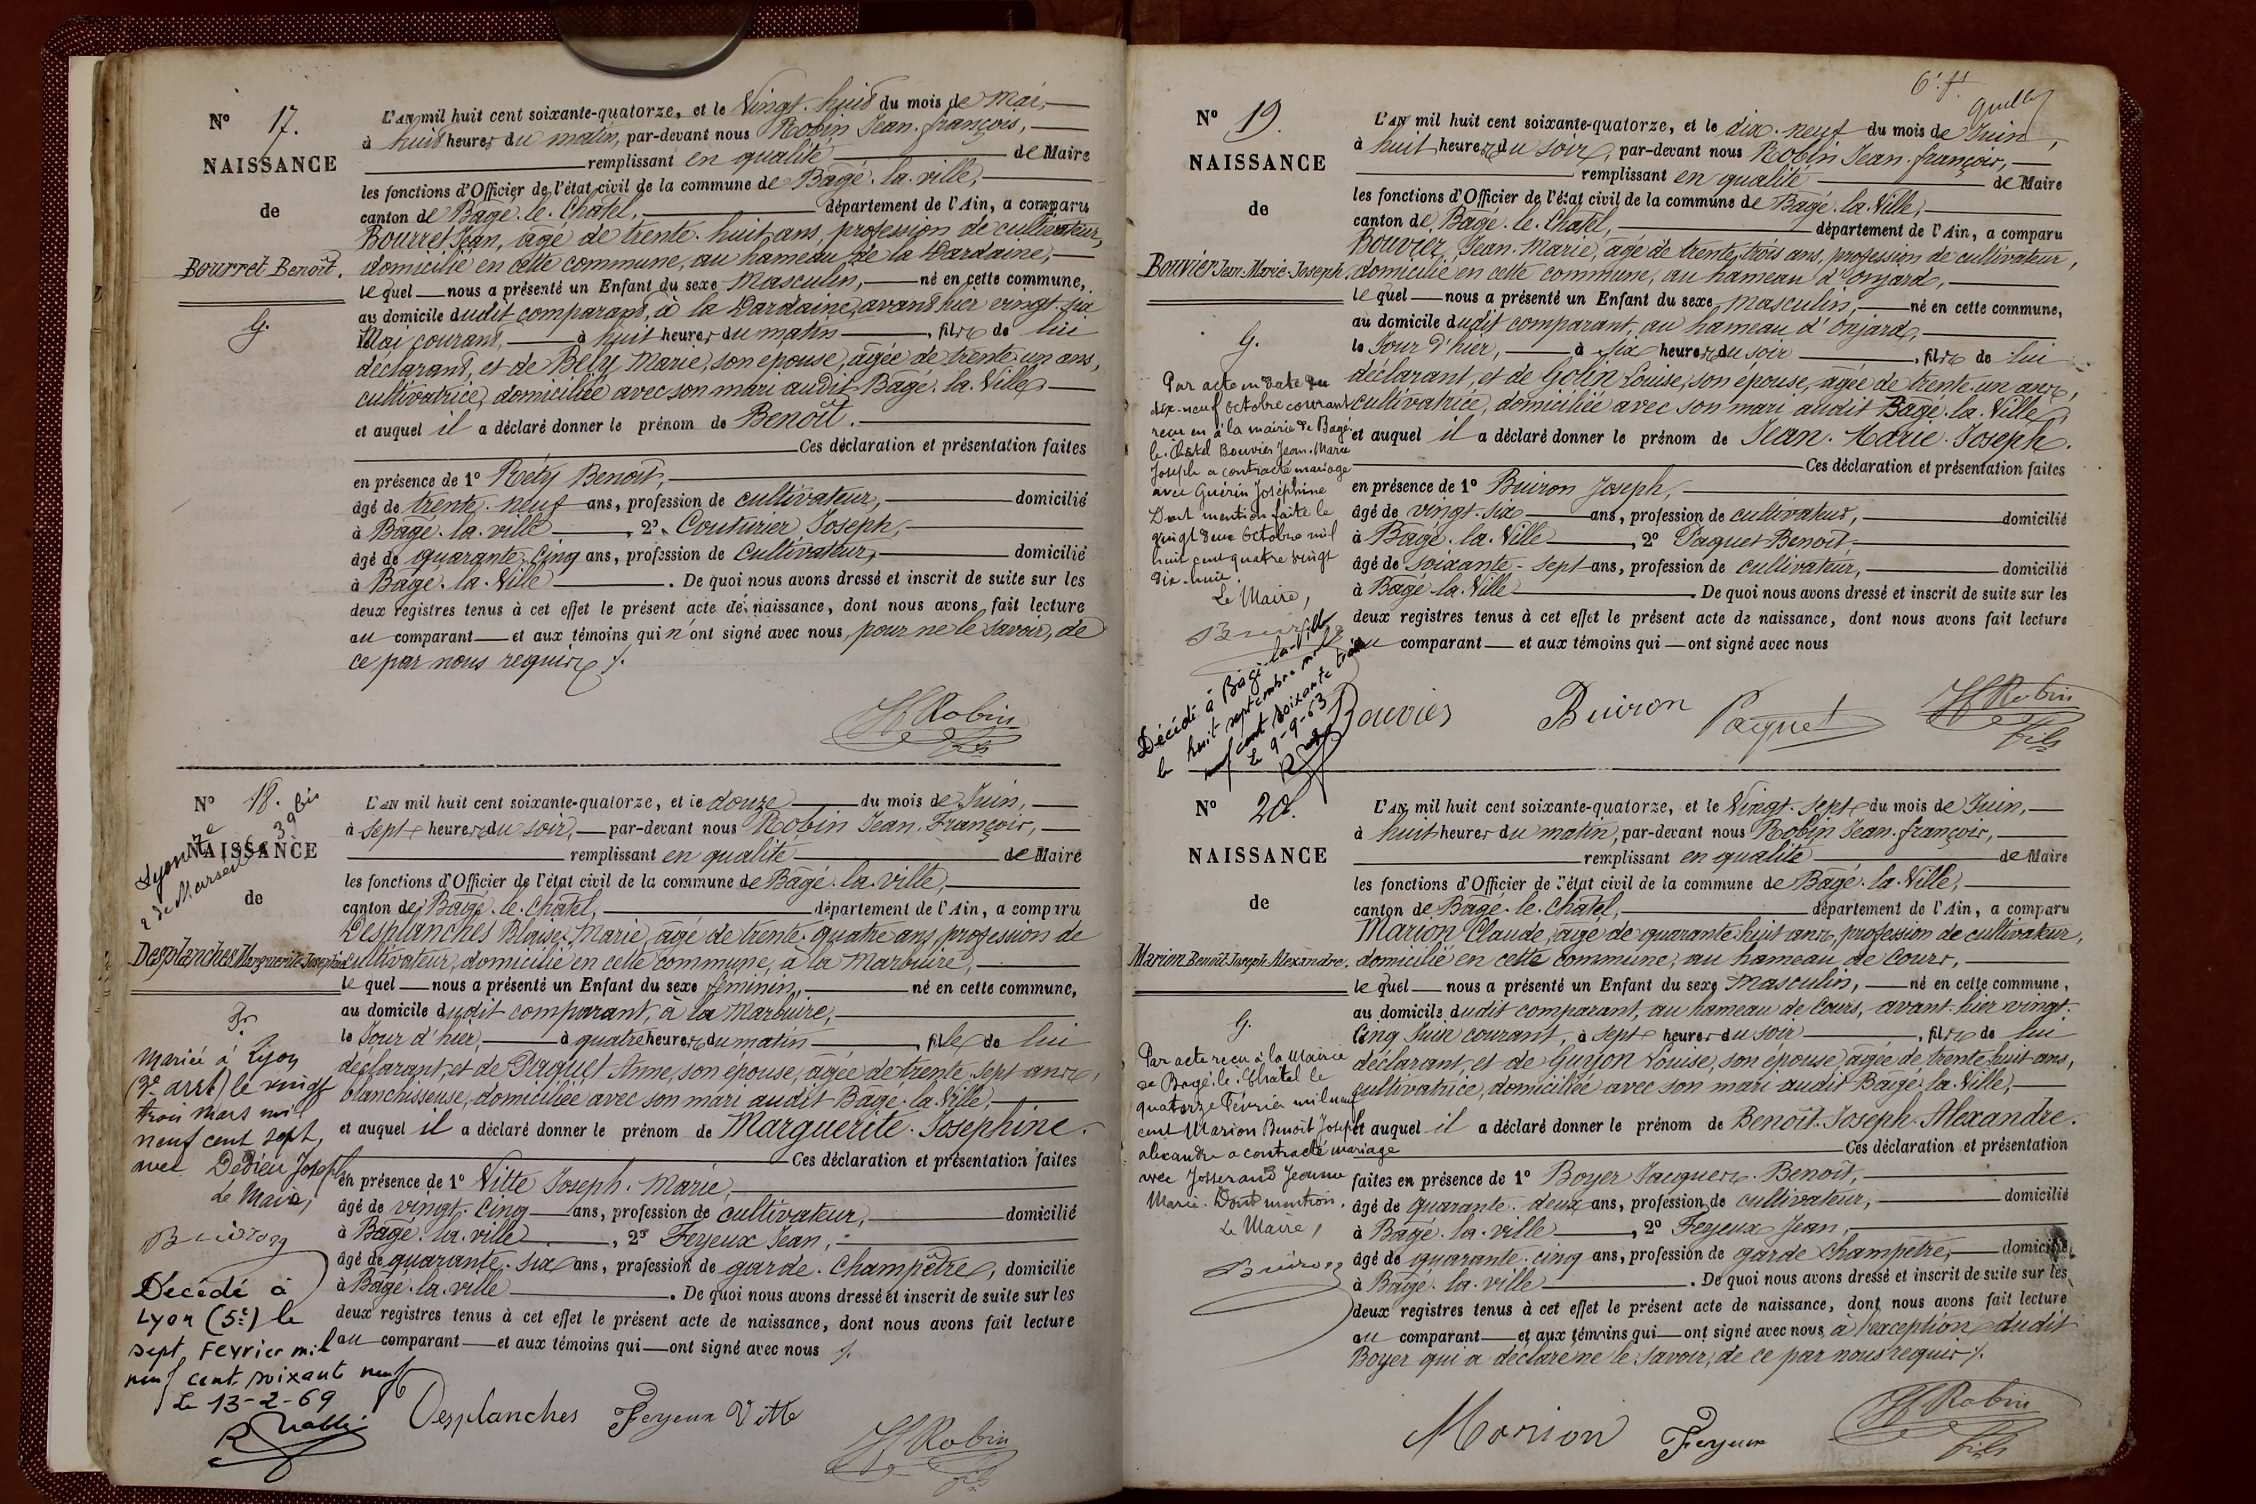 N° 17.
NAISSANCE
de
Bourret Benoît.
G.
L'AN mil huit cent soixante-quatorze, et le Vingt-huit du mois de Mai,
à huit heures du matin, par-devant nous Robin Jean-françois,
remplissant en qualité de Maire
les fonctions d'Officier de l'état civil de la commune de Bâgé-la-ville,
canton de Bâgé-le-Châtel, département de l'Ain, a comparu
Bourret Jean, âgé de trente-huit ans, profession de cultivateur,
domicilié en cette commune, au hameau de la Dardaine,
le quel nous a présenté un Enfant du sexe Masculin, né en cette commune,
au domicile dudit comparant, à la Dardaine, avant hier vingt-six
Mai courant, à huit heures du matin, fils de lui
déclarant, et de Bély Marie, son épouse, âgée de trente-un ans,
cultivatrice, domiciliée avec son mari audit Bâgé-la-Ville
et auquel il a déclaré donner le prénom de Benoît.
Ces déclaration et présentation faites
en présence de 1° Réty Benoît,
âgé de trente-neuf ans, profession de cultivateur, domicilié
à Bâgé-la-ville, 2° Couturier Joseph,
âgé de quarante-cinq ans, profession de cultivateur, domicilié
à Bâgé-la-Ville. De quoi nous avons dressé et inscrit de suite sur les
deux registres tenus à cet effet le présent acte de naissance, dont nous avons fait lecture
au comparant et aux témoins qui n'ont signé avec nous, pour ne le savoir, de
ce par nous requis ./.
Robin
fils
N° 18.
39 bis
NAISSANCE
de
Desplanches Marguerite-Josephine
F.
Mariée à Lyon
(2e arrt) le vingt
trois mars mil
neuf cent sept,
avec Dedieu Joseph
Le Maire,
Buiron
Décédé à
Lyon (5e) le
sept Février mil
neuf cent soixante neuf
Le 13-2-69
L'AN mil huit cent soixante-quatorze, et le douze du mois de Juin,
à sept heures du soir, par-devant nous Robin Jean-François,
remplissant en qualité de Maire
les fonctions d'Officier de l'état civil de la commune de Bâgé-la-ville,
canton de Bâgé-le-Châtel, département de l'Ain, a comparu
Desplanches Blaise-Marie, âgé de trente-quatre ans, profession de
cultivateur, domicilié en cette commune, à la Marbuire,
le quel nous a présenté un Enfant du sexe féminin, né en cette commune,
au domicile dudit comparant, à la Marbuire,
le Jour d'hier, à quatre heures du matin, fille de lui
déclarant, et de Paquet Anne, son épouse, âgée de trente-sept ans,
blanchisseuse, domiciliée avec son mari audit Bâgé-la-Ville,
et auquel il a déclaré donner le prénom de Marguerite-Josephine.
Ces déclaration et présentation faites
en présence de 1° Vitte Joseph-Marie,
âgé de vingt-cinq ans, profession de cultivateur, domicilié
à Bâgé-la-ville, 2° Feyeux Jean,
âgé de quarante-six ans, profession de garde-Champêtre, domicilié
à Bâgé-la-ville. De quoi nous avons dressé et inscrit de suite sur les
deux registres tenus à cet effet le présent acte de naissance, dont nous avons fait lecture
au comparant et aux témoins qui ont signé avec nous ./.
Desplanches Feyeux Vitte
Robin
fils
6e f.
N° 19.
NAISSANCE
de
Bouvier Jean-Marie-Joseph,
G.
Par acte en date du
dix-neuf octobre courant
reçu à la mairie de Bagé-
le-Châtel Bouvier Jean-Marie
Joseph a contracté mariage
avec Guérin Joséphine
Dont mention faite le
vingt deux Octobre mil
huit cent quatre vingt
dix-huit.
Le Maire,
Buiron
Décédé à Bâgé-la-Ville
le huit septembre mil
neuf cent soixante trois
Le 9-9-63
L'AN mil huit cent soixante-quatorze, et le dix-neuf du mois de Juin,
à huit heures du soir, par-devant nous Robin Jean-françois,
remplissant en qualité de Maire
les fonctions d'Officier de l'état civil de la commune de Bâgé-la-Ville,
canton de Bâgé-le-Châtel, département de l'Ain, a comparu
Bouvier, Jean-Marie, âgé de trente-trois ans, profession de cultivateur,
domicilié en cette commune, au hameau d'Onjard,
le quel nous a présenté un Enfant du sexe Masculin, né en cette commune,
au domicile dudit comparant, au hameau d'Onjard,
le Jour d'hier, à six heures du soir, fils de lui
déclarant, et de Golin Louise, son épouse, âgée de trente-un ans,
cultivatrice, domiciliée avec son mari audit Bâgé-la-Ville
et auquel il a déclaré donner le prénom de Jean-Marie-Joseph.
Ces déclaration et présentation faites
en présence de 1° Buiron Joseph,
âgé de vingt-six ans, profession de cultivateur, domicilié
à Bâgé-la-Ville, 2° Paquet Benoît,
âgé de soixante-sept ans, profession de cultivateur, domicilié
à Bâgé-la-Ville. De quoi nous avons dressé et inscrit de suite sur les
deux registres tenus à cet effet le présent acte de naissance, dont nous avons fait lecture
au comparant et aux témoins qui ont signé avec nous
Bouvier Buiron Paquet
Robin
fils
N° 20.
NAISSANCE
de
Marion Benoît-Joseph-Alexandre,
G.
Par acte reçu à la Mairie
de Bagé-le-Châtel le
quatorze Février mil neuf
cent Marion Benoît Joseph
alexandre a contracté mariage
avec Josserand Jeanne
Marie. Dont mention.
Le Maire,
Buiron
L'AN mil huit cent soixante-quatorze, et le Vingt-sept du mois de Juin,
à huit heures du matin, par-devant nous Robin Jean-françois,
remplissant en qualité de Maire
les fonctions d'Officier de l'état civil de la commune de Bâgé-la-Ville,
canton de Bâgé-le-Châtel, département de l'Ain, a comparu
Marion Claude, âgé de quarante-huit ans, profession de cultivateur,
domicilié en cette commune, au hameau de Cours,
le quel nous a présenté un Enfant du sexe Masculin, né en cette commune,
au domicile dudit comparant, au hameau de Cours, avant-hier vingt-
cinq Juin courant, à sept heures du soir, fils de lui
déclarant, et de Guyon Louise, son épouse, âgée de trente-huit ans,
cultivatrice, domiciliée avec son mari audit Bâgé-la-Ville,
et auquel il a déclaré donner le prénom de Benoît-Joseph-Alexandre.
Ces déclaration et présentation
faites en présence de 1° Boyer Jacques-Benoît,
âgé de quarante-deux ans, profession de cultivateur, domicilié
à Bâgé-la-ville, 2° Feyeux Jean,
âgé de quarante-cinq ans, profession de garde Champêtre, domicilié
à Bâgé-la-ville. De quoi nous avons dressé et inscrit de suite sur les
deux registres tenus à cet effet le présent acte de naissance, dont nous avons fait lecture
au comparant et aux témoins qui ont signé avec nous, à l'exception dudit
Boyer qui a déclaré ne le savoir, de ce par nous requis ./.
Marion Feyeux
Robin
fils